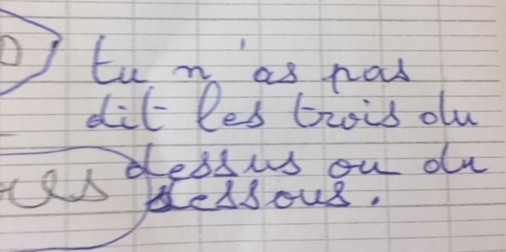 tu n'as pas
dit les trois du
dessus ou du
dessous.